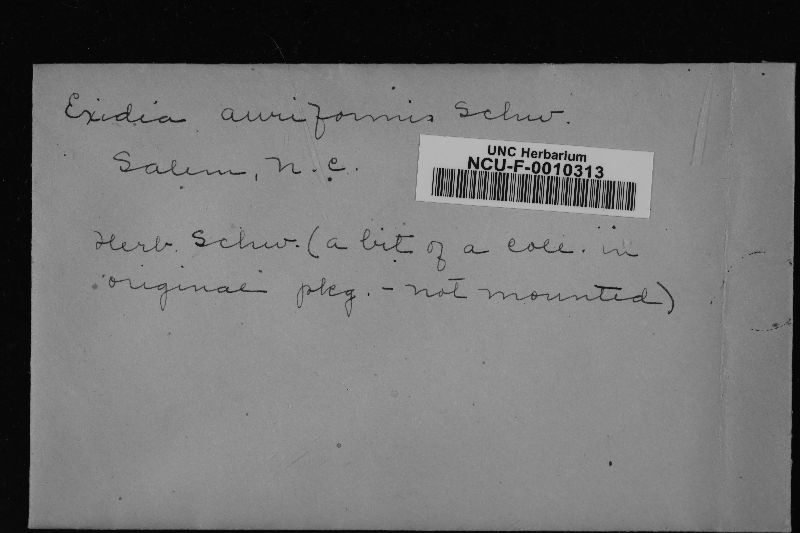 Exidia auriformis Schw.
UNC Herbarium
NCU-F-0010313
Salem, N.C.
Herb. Schw. (a bit of a coll. in
original pkg. - not mounted)